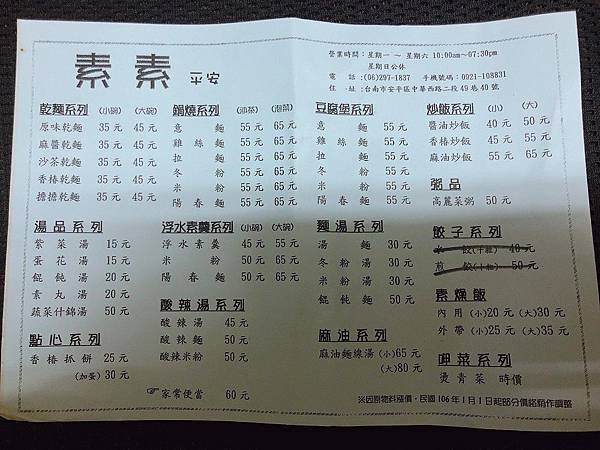 素素 平安
營業時間：星期一 ～ 星期六 10:00am～07:30pm
星期日公休
電 話：(06)297-1837 手機號碼：0921-108831
住 址：台南市安平區中華西路二段49巷40號
乾麵系列 (小碗) (大碗)
原味乾麵 35元 45元
麻醬乾麵 35元 45元
沙茶乾麵 35元 45元
香椿乾麵 35元 45元
擔擔乾麵 35元 45元
鍋燒系列 (沙茶) (泡菜)
意 麵 55元 65元
雞絲麵 55元 65元
拉 麵 55元 65元
冬 粉 55元 65元
米 粉 55元 65元
陽春麵 55元 65元
豆腐堡系列
意 麵 55元 65元
雞絲麵 55元 65元
拉 麵 55元 65元
冬 粉 55元 65元
米 粉 55元 65元
陽春麵 55元 65元
炒飯系列 (小) (大)
醬油炒飯 40元 50元
香椿炒飯 45元 55元
麻油炒飯 55元 65元
粥品
高麗菜粥 50元
湯品系列
紫菜湯 15元
蛋花湯 15元
餛飩湯 20元
素丸湯 20元
蔬菜什錦湯 50元
浮水素羹系列 (小碗) (大碗)
浮水素羹 45元 55元
米 粉 50元 65元
陽春麵 50元 65元
麵湯系列
湯 麵 30元
冬粉湯 30元
米粉湯 30元
餛飩麵 50元
餃子系列
水 餃(十粒) 40元
煎 餃(十粒) 50元
素燥飯
內用 (小)20元 (大)30元
外帶 (小)25元 (大)35元
酸辣湯系列
酸辣湯 45元
酸辣麵 50元
酸辣米粉 50元
點心系列
香椿抓餅 25元
(加蛋)30元
麻油系列
麻油麵線湯 (小)65元
(大)80元
呷菜系列
燙青菜 時價
☞家常便當 60元
※因應物料漲價，民國106年1月1日起部分價格稍作調整